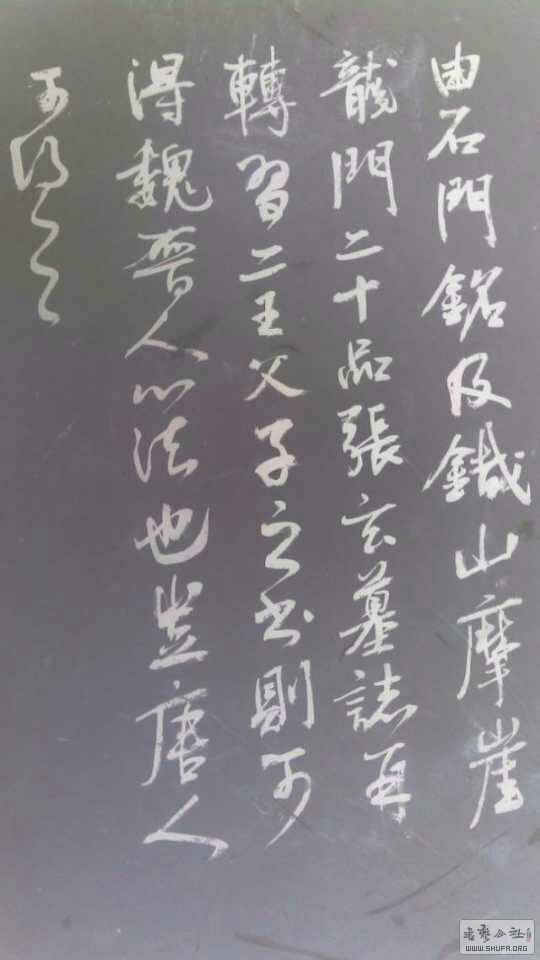 由石門銘及鐵山摩崖
龍門二十品張玄墓誌再
轉習二王父子之書則可
得魏晉人心法也豈唐人
可得之
書藝公社
WWW.SHUFA.ORG